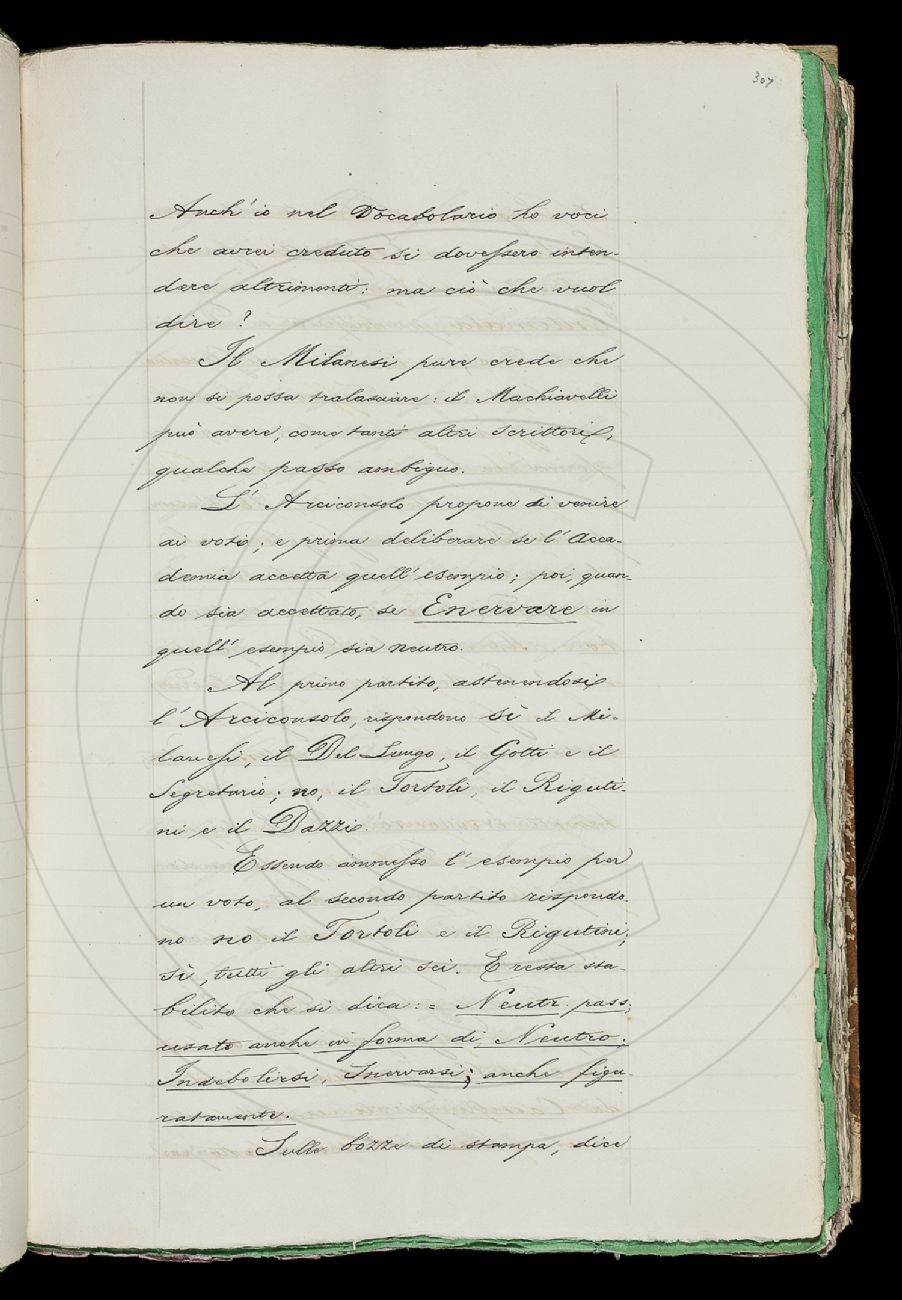 307
Anch' io nel Vocabolario ho voci
che avrei creduto si dovessero inten-
dere altrimenti: ma ciò che vuol
dire?
Il Milanesi pure crede che
non si possa tralasciare: il Machiavelli
può avere, come tanti altri scrittori,
qualche passo ambiguo.
L' Arciconsolo propone di venire
ai voti; e prima deliberare se l' Acca-
demia accetta quell' esempio; poi, quan-
do sia accettato, se Enervare in
quell' esempio sia neutro.
Al primo partito, astenendosi
l' Arciconsolo, rispondono sì il Mi-
lanesi, il Del Lungo, il Gotti e il
Segretario; no, il Tortoli, il Riguti-
ni e il Dazzi.
Essendo ammesso l' esempio per
un voto, al secondo partito rispondo-
no no il Tortoli e il Rigutini;
sì, tutti gli altri sei. E resta sta-
bilito che si dica: = Neutr. pass.
usato anche in forma di Neutro.
Indebolirsi, Snervarsi; anche figu-
ratamente.
Sulle bozze di stampa, dice